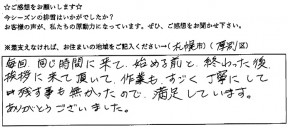 ☆ご感想をお願いします☆
今シーズンの排雪はいかがでしたか？
お客様の声が、私たちの原動力になっています。ぜひ、ご感想をお聞かせ下さい。
※差支えなければ、お住まいの地域をご記入ください→(札幌市)(厚別区)
毎回 同じ時間に来て、始める前と、終わった後、
挨拶に来て頂いて、作業も、すごく丁寧にして
残す事も無かったので、満足しています。
ありがとうございました。